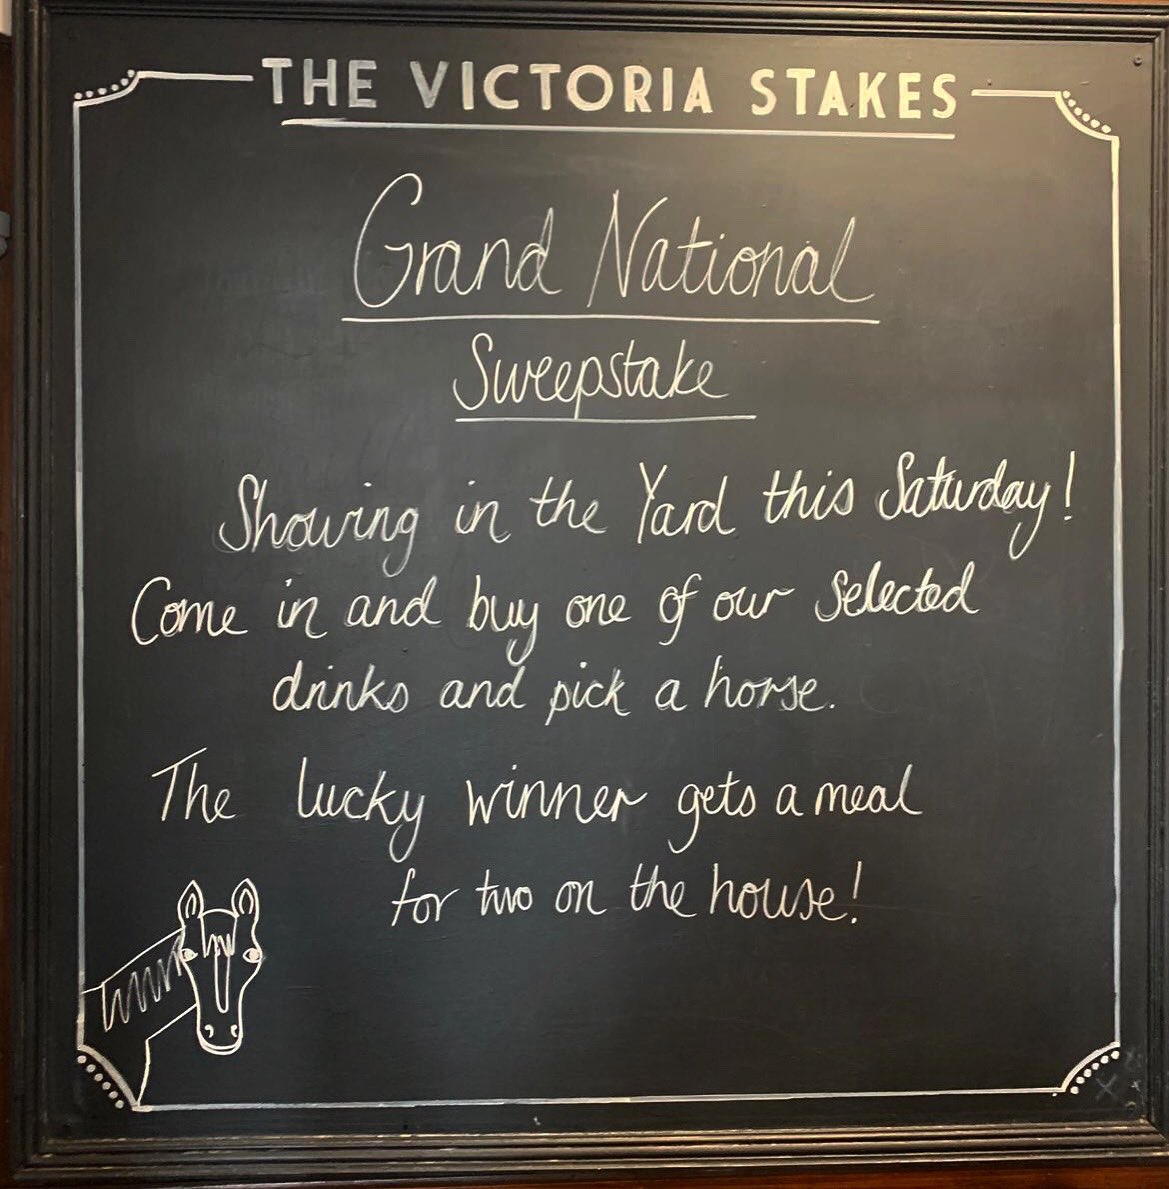 THE VICTORIA STAKES
Grand National
Sweepstake
Showing in the Yard this Saturday!
Come in and buy one of our selected
drinks and pick a horse.
The lucky winner gets a meal
for two on the house!